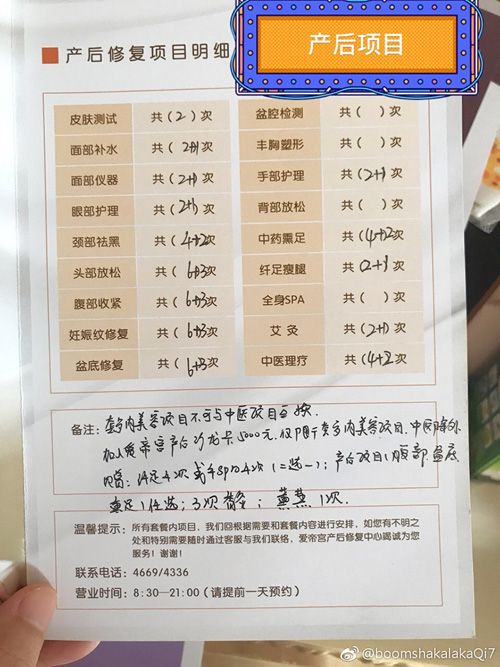 产后项目
产后修复项目明细
皮肤测试 共（2）次 盆腔检测 共（ ）次
面部补水 共（2+1）次 丰胸塑形 共（ ）次
面部仪器 共（2+1）次 手部护理 共（2+1）次
眼部护理 共（2+1）次 背部放松 共（ ）次
颈部祛黑 共（4+2）次 中药熏足 共（4+2）次
头部放松 共（6+3）次 纤足瘦腿 共（2+1）次
腹部收紧 共（6+3）次 全身SPA 共（ ）次
妊娠纹修复 共（6+3）次 艾灸 共（2+1）次
盆底修复 共（6+3）次 中医理疗 共（4+2）次
备注：套餐内美容项目不可与中医项目互换.
加入爱帝宫产后沙龙卡5000元，仅限于套餐内美容项目、中医除外
4次 4次（二选一）；产后项目：腹部 盆底
任选；3次 1次.
温馨提示：所有套餐内项目，我们回根据需要和套餐内容进行安排，如您有不明之
处和特别需要随时通过客服与我们联络，爱帝宫产后修复中心竭诚为您
服务！谢谢！
联系电话：4669/4336
营业时间：8:30—21:00（请提前一天预约）
@boomshakalakaQi7